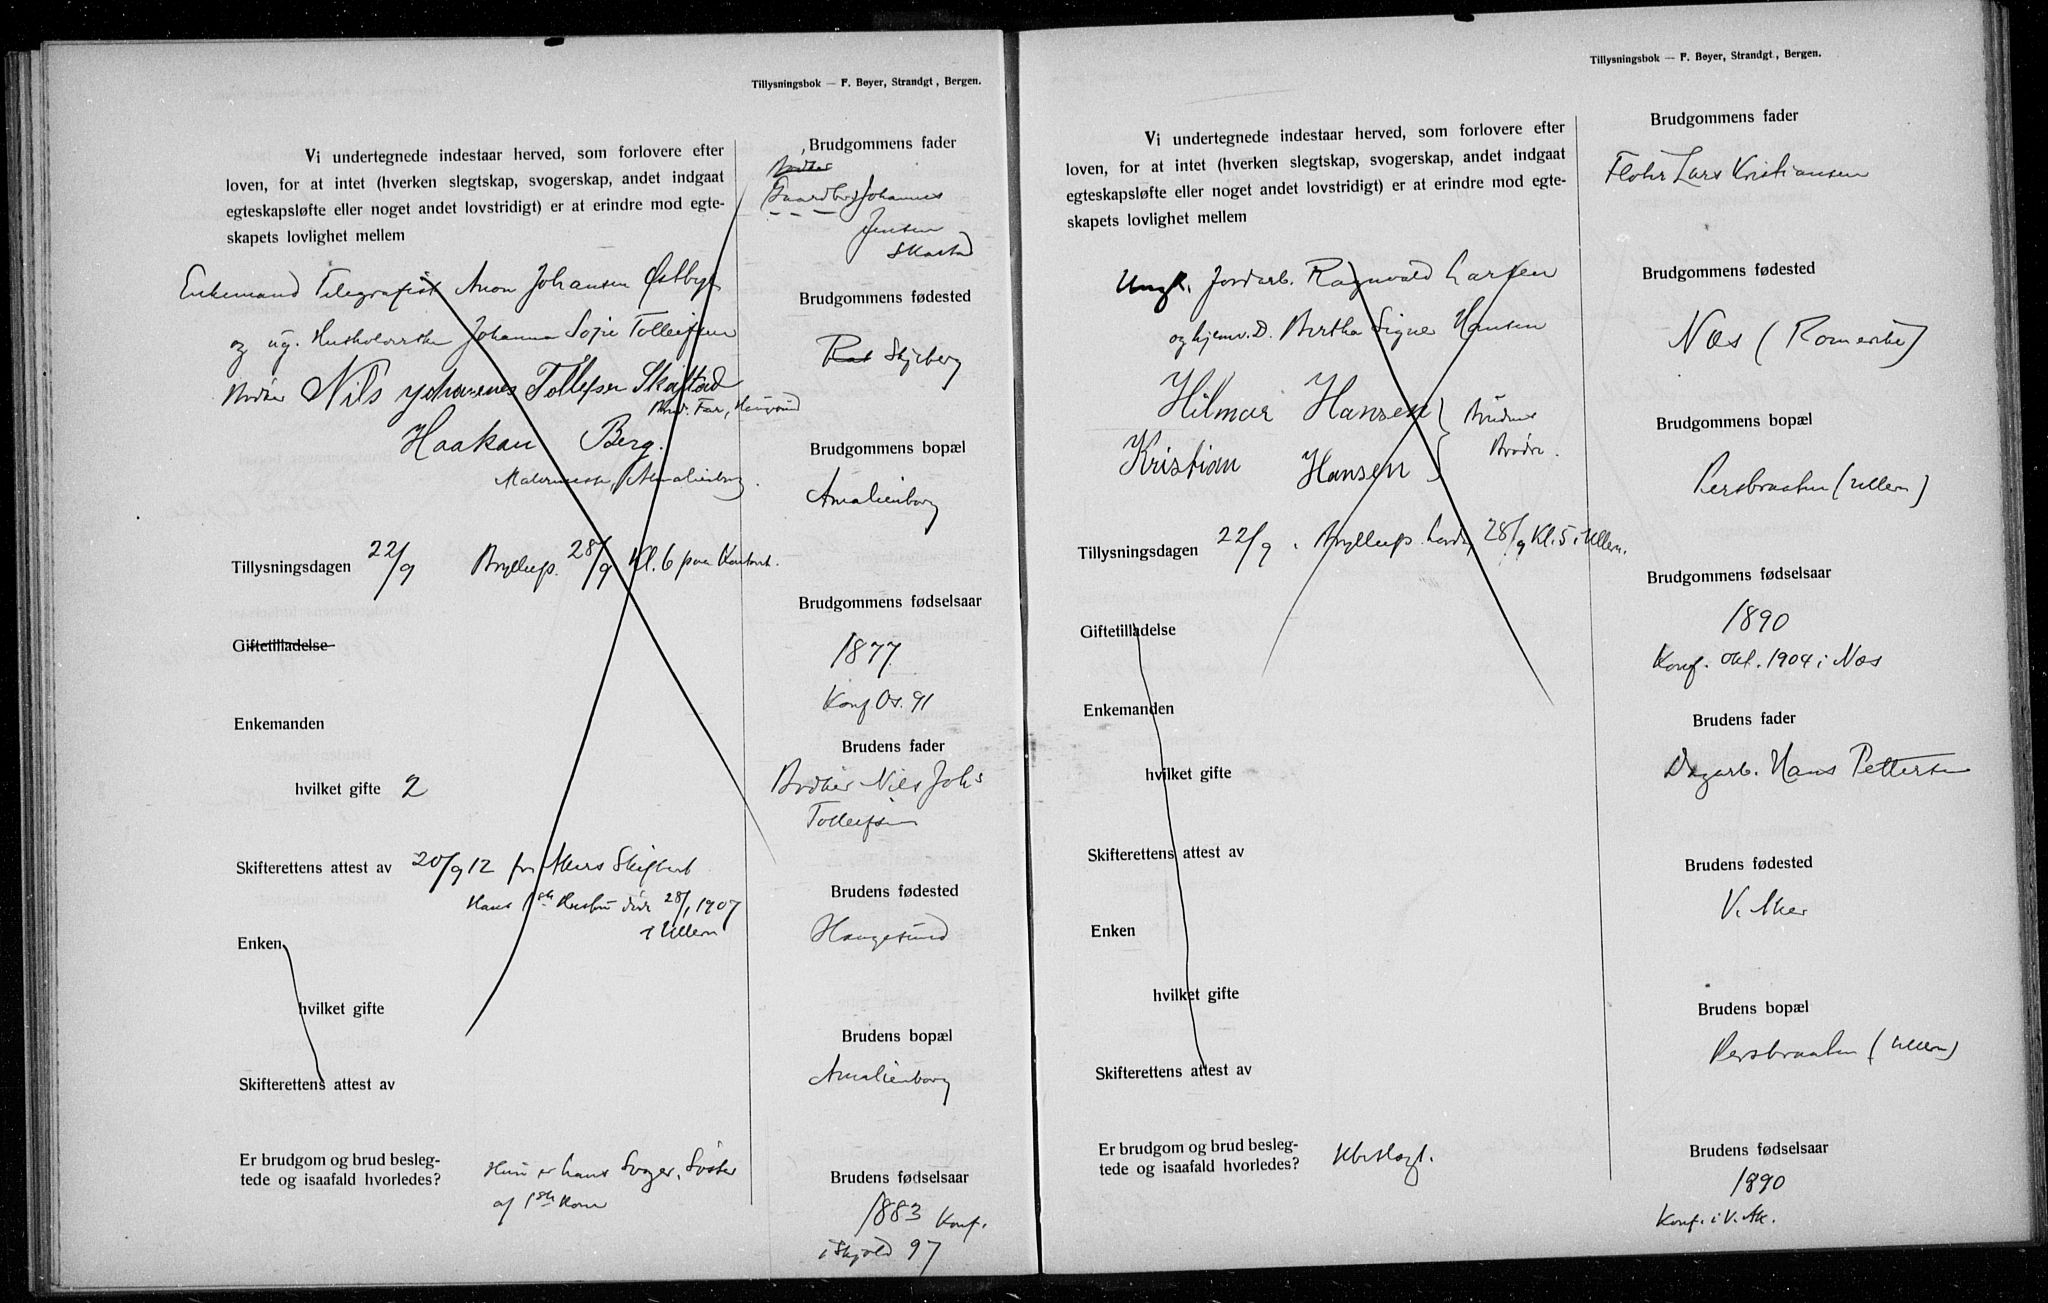 Tillysningsbok — F. Beyer, Strandgt, Bergen.
Vi undertegnede indestaar herved, som forlovere efter
loven, for at intet (hverken slegtskap, svogerskap, andet indgaat
egteskapsløfte eller noget andet lovstridigt) er at erindre mod egte-
skapets lovlighet mellem
Enkemand Telegrafist Anon Johansen Østbye
og ug. Husholderske Johanna Sofie Tolleifsen
Bødker Nils Johannes Tollefsen Skastad
Brud. Far, Haugesund
Haakan Berg.
Malermester, Amalienborg.
Tillysningsdagen 22/9 Bryllup. 28/9 Kl. 6 paa Kontoret.
Giftetilladelse
Enkemanden
hvilket gifte 2
Skifterettens attest av 20/9 12 fra Akers Skifteret
Hans 1ste Hustru døde 28/1 1907
i Ullern
Enken
hvilket gifte
Skifterettens attest av
Er brudgom og brud besleg-
tede og isaafald hvorledes?
Hun er hans Svoger. Søster
af 1ste Kone
Brudgommens fader
Bødker
Gaardbr. Johannes
Jensen
Skastad
Brudgommens fødested
Skjeberg
Brudgommens bopæl
Amalienborg
Brudgommens fødselsaar
1877
Konf Os. 91
Brudens fader
Bødker Nils Johs
Tolleifsen
Brudens fødested
Haugesund
Brudens bopæl
Amalienborg
Brudens fødselsaar
1883 Konf.
i Skjold 97
Tillysningsbok — F. Beyer, Strandgt, Bergen.
Vi undertegnede indestaar herved, som forlovere efter
loven, for at intet (hverken slegtskap, svogerskap, andet indgaat
egteskapsløfte eller noget andet lovstridigt) er at erindre mod egte-
skapets lovlighet mellem
Ungk. Jordarb. Ragnvald Larsen
og hjemv. D. Bertha Signe Hansen
Hilmar Hansen } Brudens
Kristian Hansen } Brødre.
Tillysningsdagen 22/9. Bryllup. Lørd. 28/9 Kl. 5 i Ullern.
Giftetilladelse
Enkemanden
hvilket gifte
Skifterettens attest av
Enken
hvilket gifte
Skifterettens attest av
Er brudgom og brud besleg-
tede og isaafald hvorledes?
Ubeslægt.
Brudgommens fader
Fløter Lars Kristiansen
Brudgommens fødested
Næs (Romerike)
Brudgommens bopæl
Persbraaten (Ullern)
Brudgommens fødselsaar
1890
Konf. Okt. 1904 i Næs
Brudens fader
Dagarb. Hans Pettersen
Brudens fødested
V. Aker
Brudens bopæl
Persbraaten (Ullern)
Brudens fødselsaar
1890
Konf. i V. Ak.